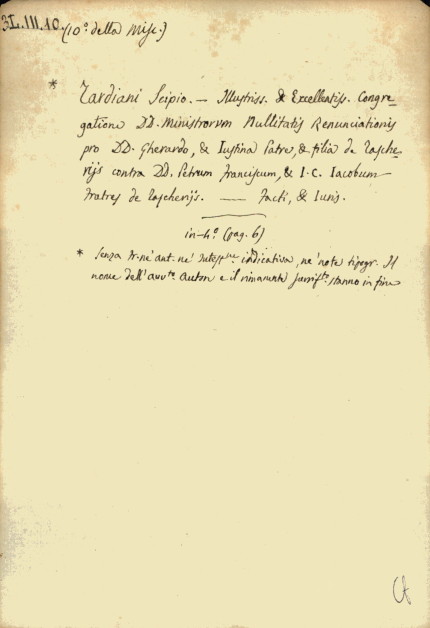 3L.III.10. (10º della Misc.)
* Tardiani Scipio. — Illustriss. & Excellentiss. Congre-
gatione DD. Ministrorum Nullitatis Renunciationis
pro DD. Gherardo, & Iustina Patre, & filia de Rasche-
rijs contra DD. Petrum Franciscum, & I. C. Iacobum
Fratres de Rascherijs. — Facti, & Iuris.
in-4º (pag. 6)
* Senza fr. né ant. né intest.ne indicativa, né note tipogr. Il
nome dell' Autore e il rimanente stanno in fine